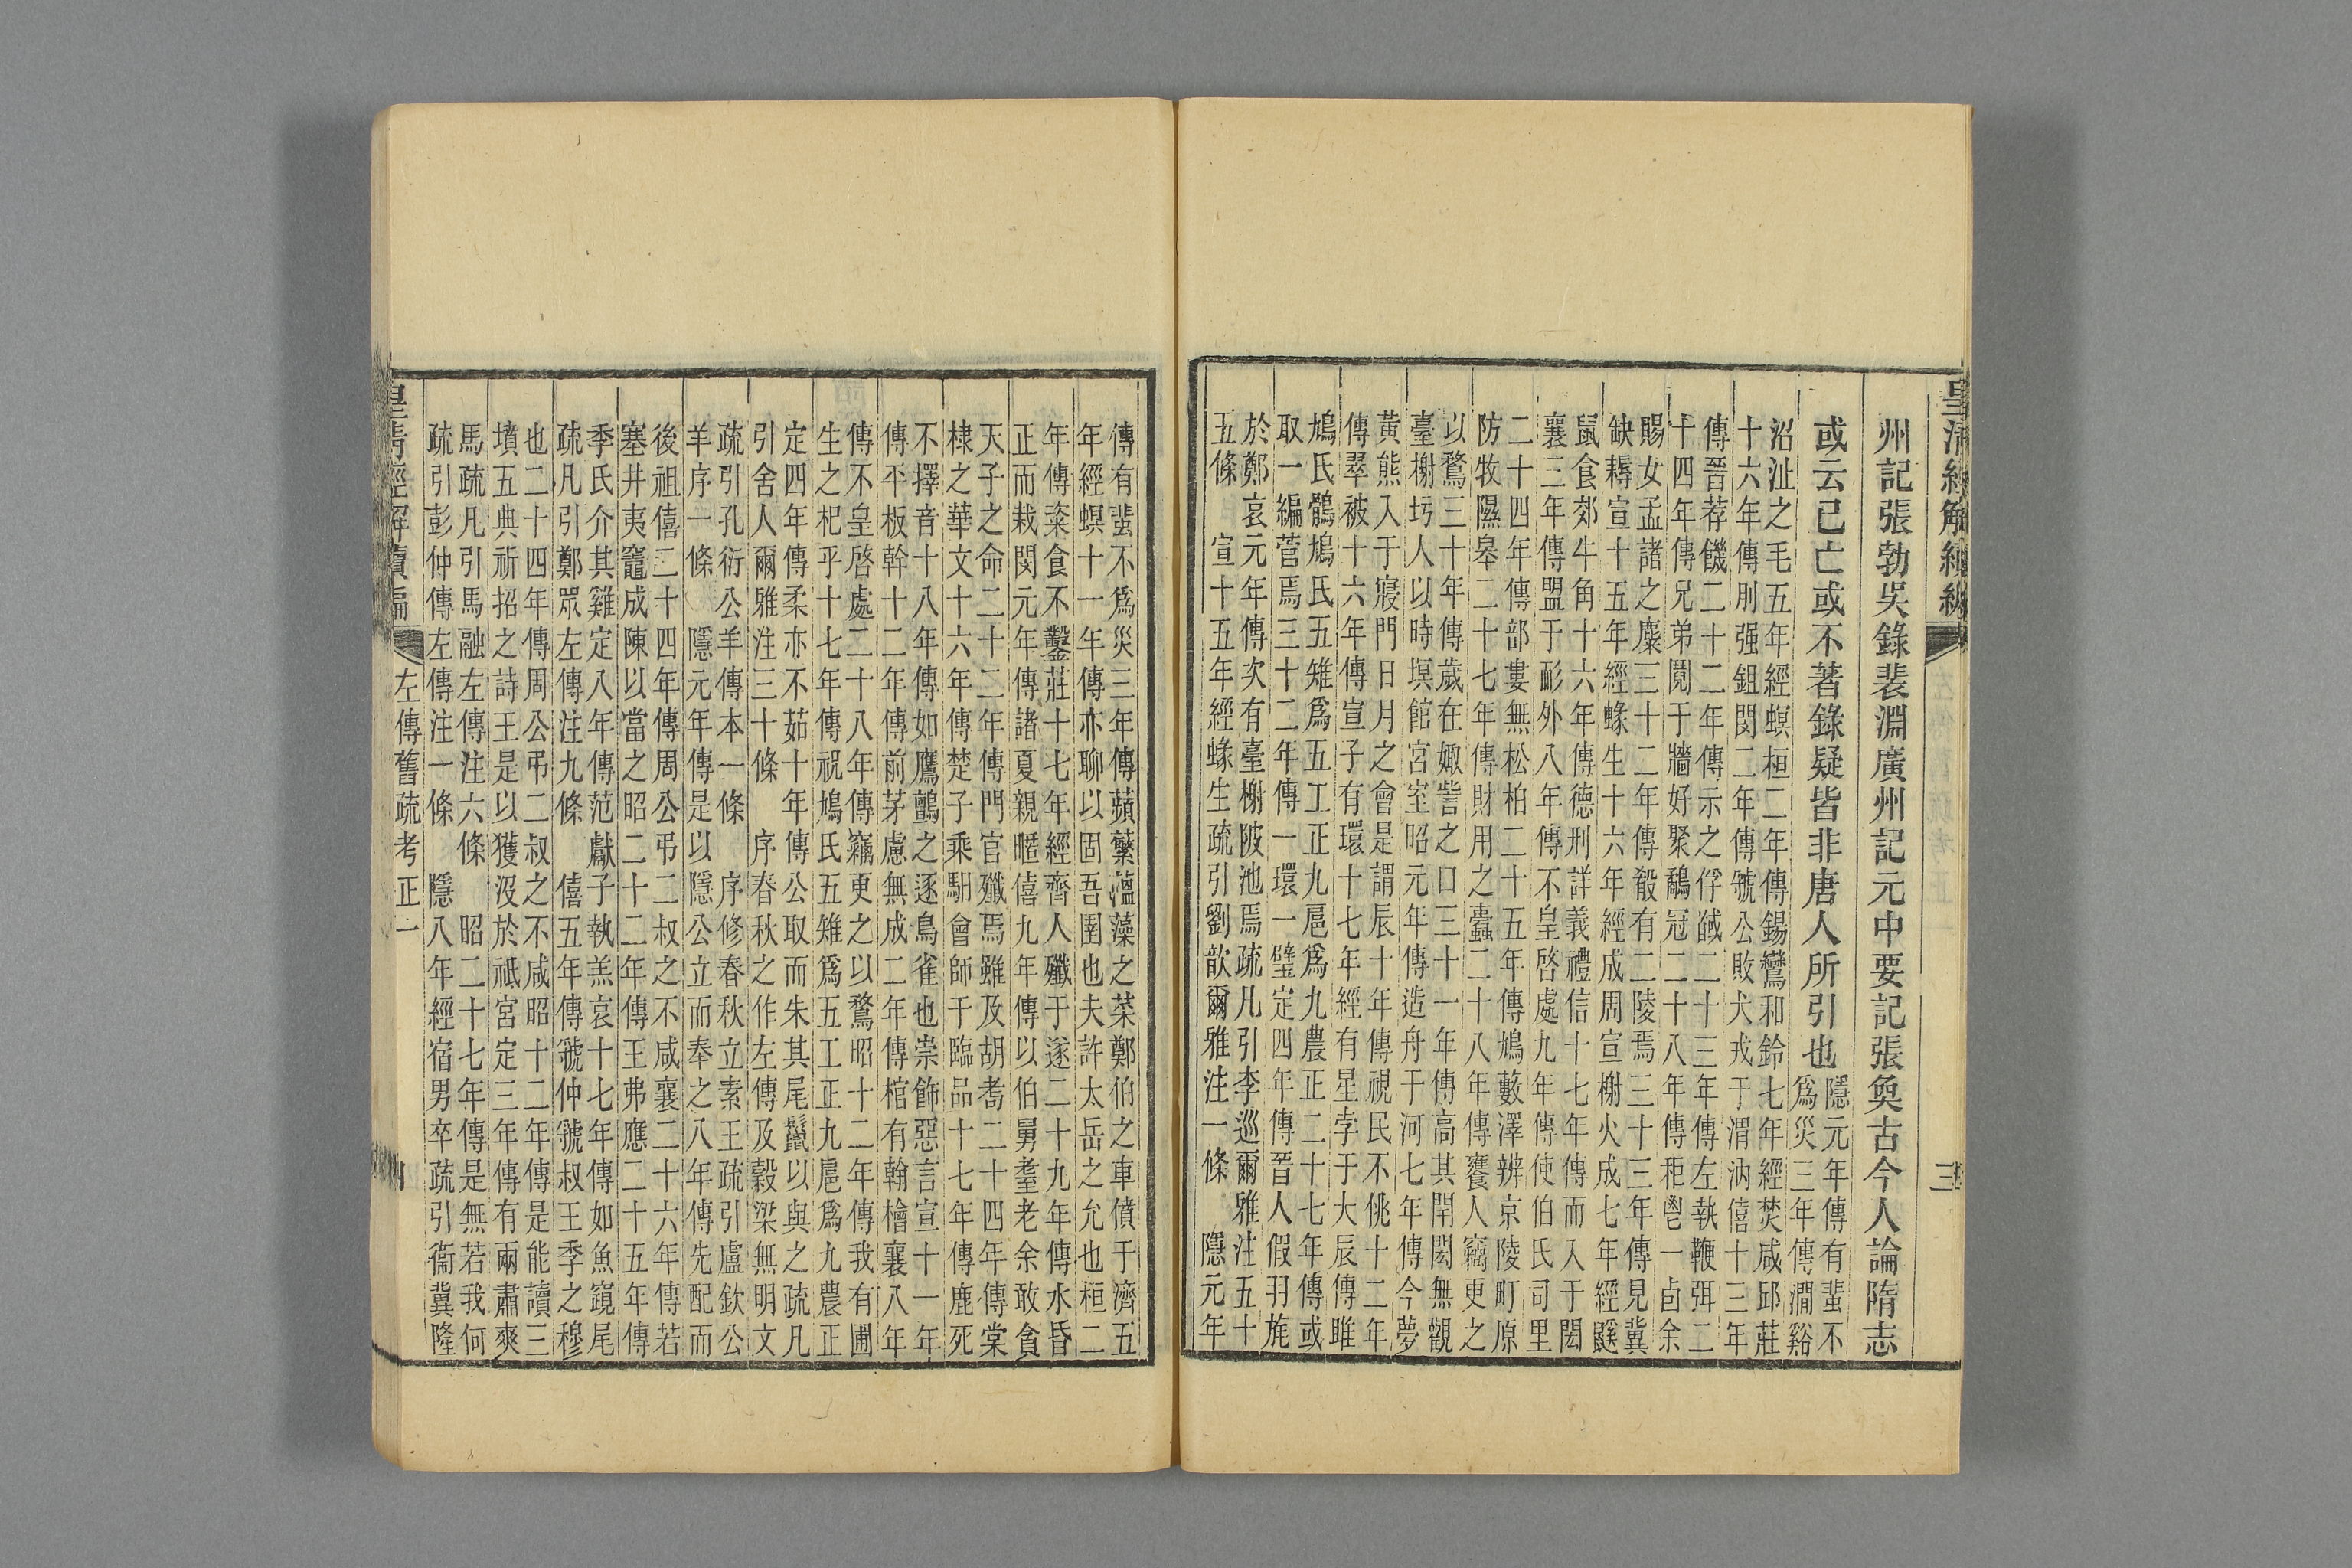 皇清經解續編
三
州記張勃吳錄裴淵廣州記元中要記張奐古今人論隋志
或云已亡或不著錄疑皆非唐人所引也
隱元年傳有蜚不
爲災三年傳澗谿
沼沚之毛五年經螟桓二年傳鍚鸞和鈴七年經焚咸邱莊
十六年傳刖强鉏閔二年傳虢公敗犬戎于渭汭僖十三年
傳晉荐饑二十二年傳示之俘馘二十三年傳左執鞭弭二
十四年傳兄弟鬩于牆好聚鷸冠二十八年傳秬鬯一卣余
賜女孟諸之麋三十二年傳殽有二陵焉三十三年傳見冀
缺耨宣十五年經蝝生十六年經成周宣榭火成七年經鼷
鼠食郊牛角十六年傳德刑詳義禮信十七年傳而入于閎
襄三年傳盟于耏外八年傳不皇啓處九年傳使伯氏司里
二十四年傳部婁無松柏二十五年傳鳩藪澤辨京陵町原
防牧隰皋二十七年傳財用之蠹二十八年傳饔人竊更之
以鶩三十年傳歲在娵訾之口三十一年傳高其閈閎無觀
臺榭圬人以時塓館宮室昭元年傳造舟于河七年傳今夢
黃熊入于寢門日月之會是謂辰十年傳視民不佻十二年
傳翠被十六年傳宣子有環十七年經有星孛于大辰傳雎
鳩氏鶻鳩氏五雉爲五工正九扈爲九農正二十七年傳或
取一編菅焉三十二年傳一環一璧定四年傳晉人假羽旄
於鄭哀元年傳次有臺榭陂池焉疏凡引李巡爾雅注五十
五條　宣十五年經蝝生疏引劉歆爾雅注一條　隱元年
傳有蜚不爲災三年傳蘋蘩薀藻之菜鄭伯之車僨于濟五
年經螟十一年傳亦聊以固吾圉也夫許太岳之允也桓二
年傳粢食不鑿莊十七年經齊人殲于遂二十九年傳水昏
正而栽閔元年傳諸夏親暱僖九年傳以伯舅耋老余敢貪
天子之命二十二年傳門官殲焉雖及胡耇二十四年傳棠
棣之華文十六年傳楚子乘馹會師于臨品十七年傳鹿死
不擇音十八年傳如鷹鸇之逐鳥雀也崇飾惡言宣十一年
傳平板榦十二年傳前茅慮無成二年傳棺有翰檜襄八年
傳不皇啓處二十八年傳竊更之以鶩昭十二年傳我有圃
生之杞乎十七年傳祝鳩氏五雉爲五工正九扈爲九農正
定四年傳柔亦不茹十年傳公取而朱其尾鬣以與之疏凡
引舍人爾雅注三十條　序春秋之作左傳及穀梁無明文
疏引孔衍公羊傳本一條　序修春秋立素王疏引盧欽公
羊序一條　隱元年傳是以隱公立而奉之八年傳先配而
後祖僖二十四年傳周公弔二叔之不咸襄二十六年傳若
塞井夷竈成陳以當之昭二十二年傳王弗應二十五年傳
季氏介其雞定八年傳范獻子執羔哀十七年傳如魚竀尾
疏凡引鄭眾左傳注九條　僖五年傳虢仲虢叔王季之穆
也二十四年傳周公弔二叔之不咸昭十二年傳是能讀三
墳五典祈招之詩王是以獲沒於祗宮定三年傳有兩肅爽
馬疏凡引馬融左傳注六條　昭二十七年傳是無若我何
疏引彭仲傳左傳注一條　隱八年經宿男卒疏引衞冀隆
皇清經解續編
左傳舊疏考正一
四